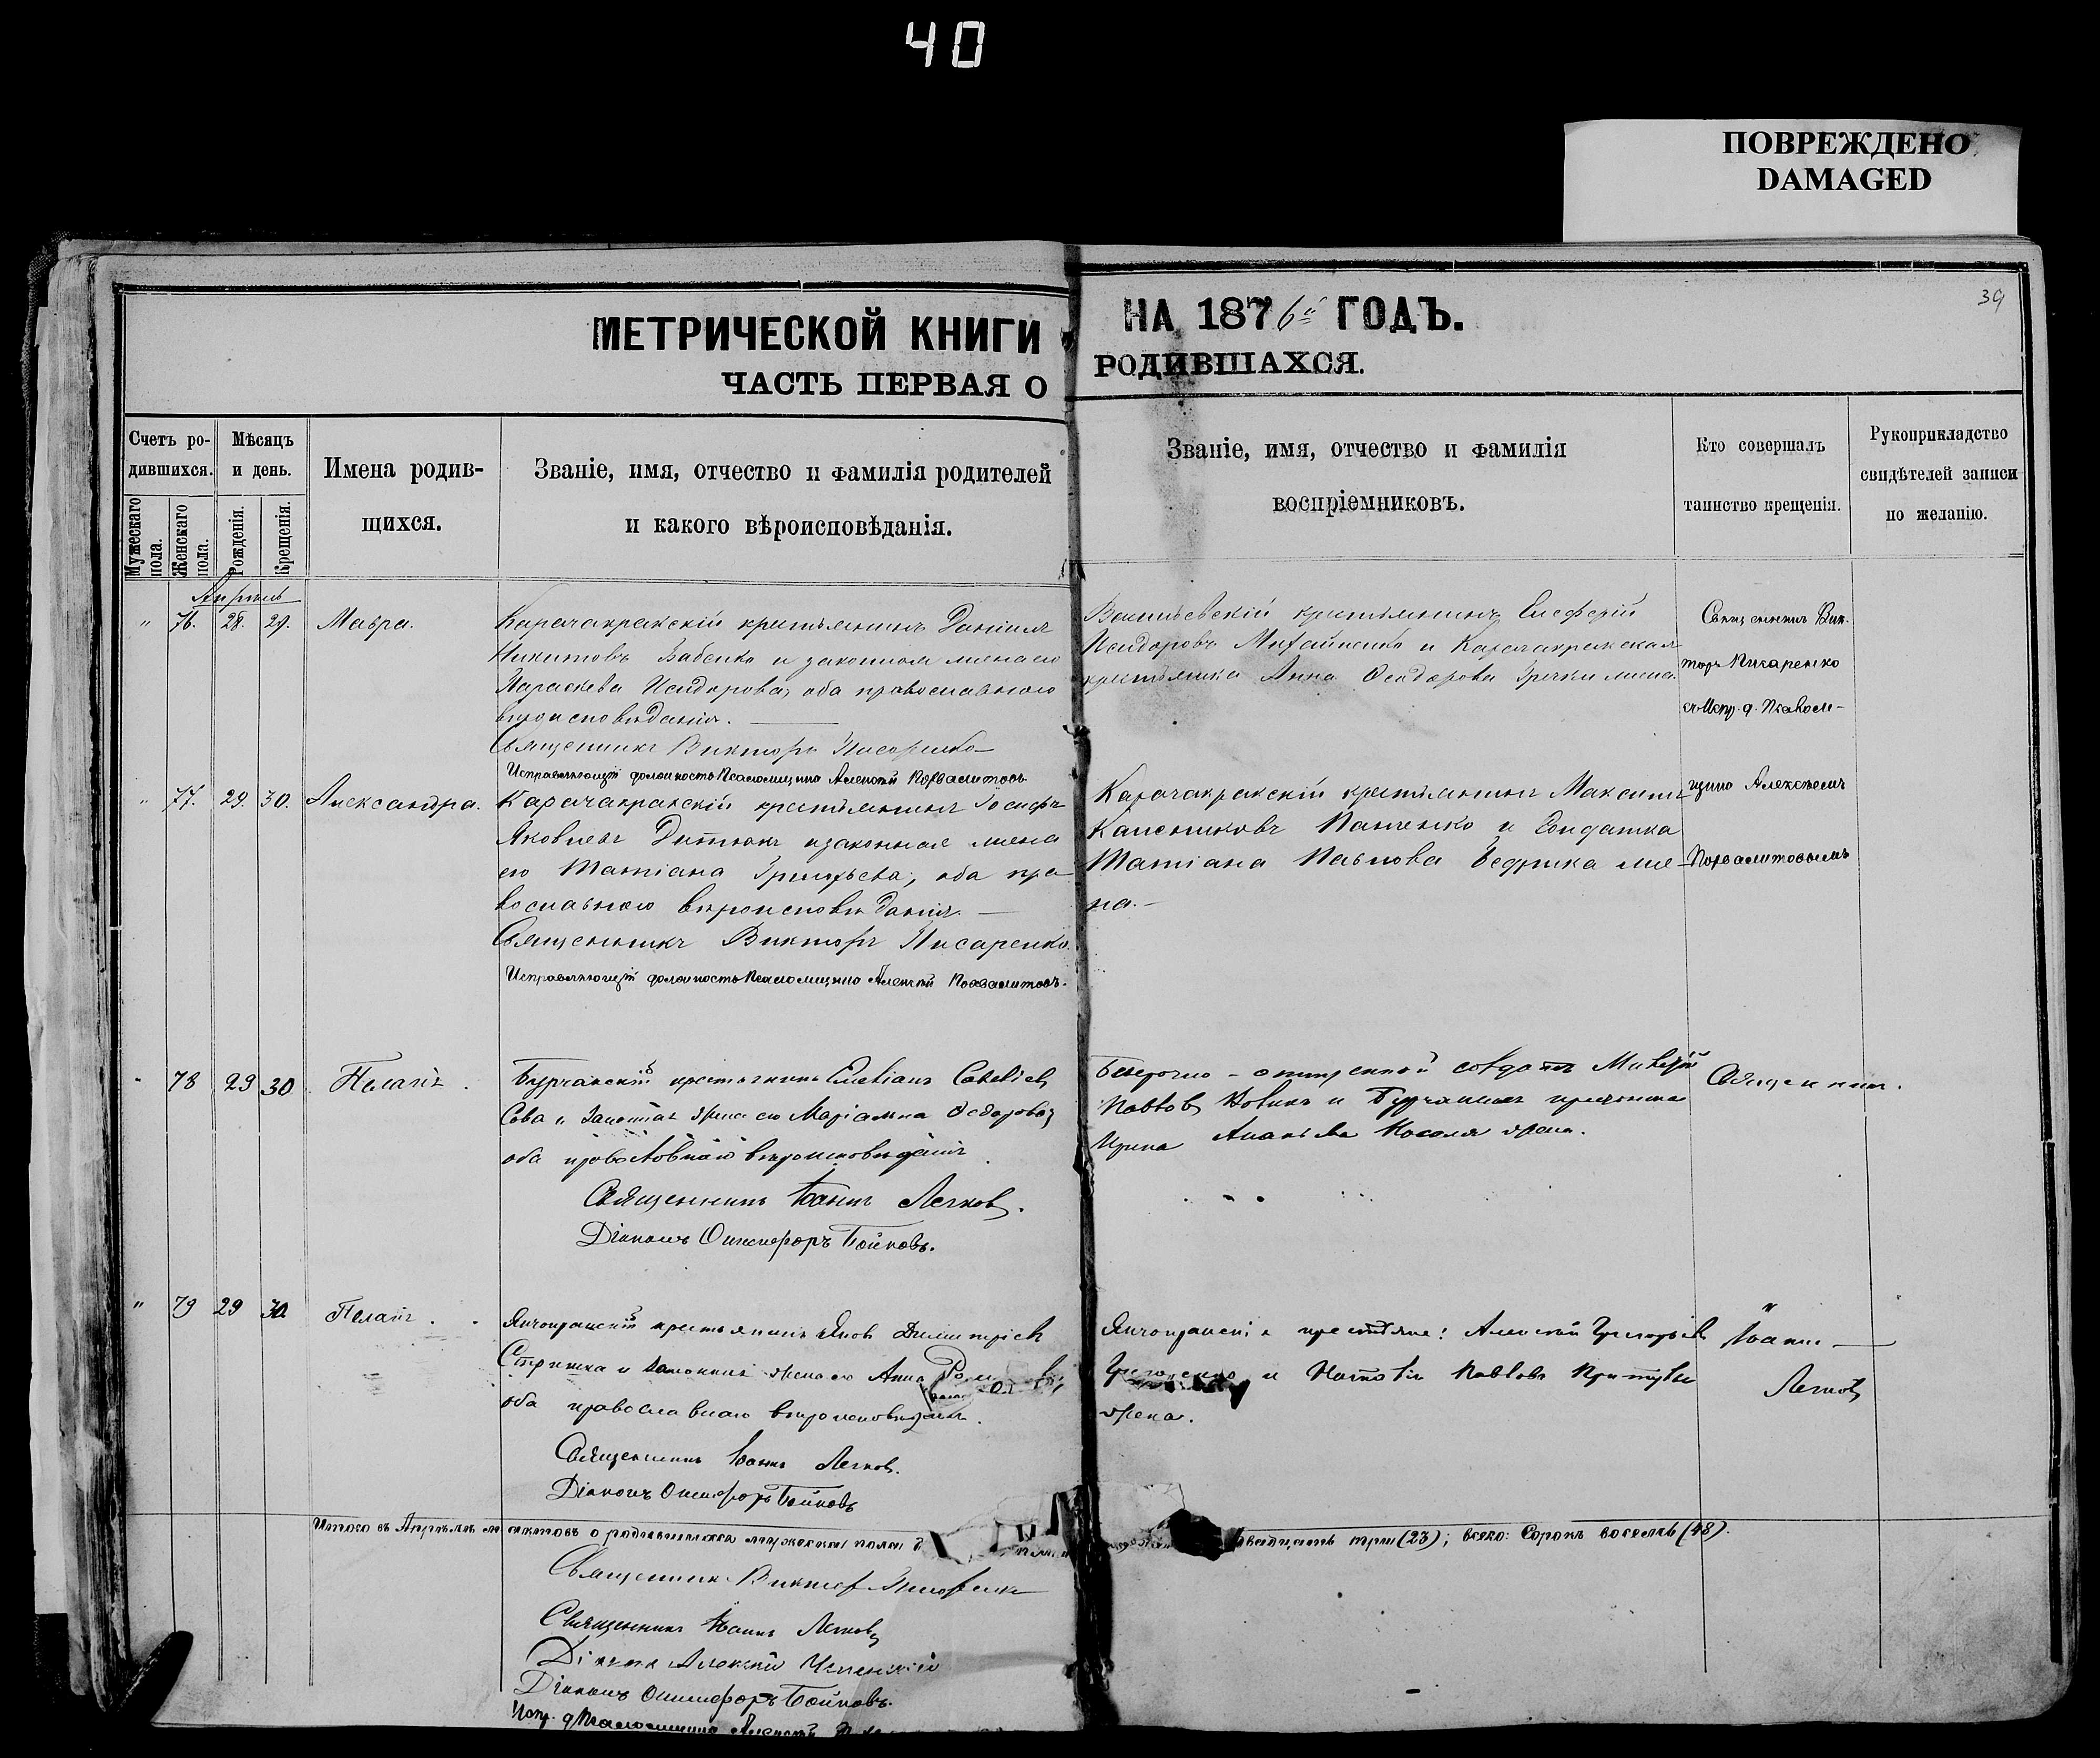 40
ПОВРЕЖДЕНО
DAMAGED
39
МЕТРИЧЕСКОЙ КНИГИ
НА 1876й ГОДЪ.
ЧАСТЬ ПЕРВАЯ О
РОДИВШАХСЯ.
Счетъ ро-
дившихся.
Мѣсяцъ
и день.
Имена родив-
щихся.
Званіе, имя, отчество и фамилія родителей
и какого вѣроисповѣданія.
Званіе, имя, отчество и фамилія
воспріемниковъ.
Кто совершалъ
таинство крещенія.
Рукоприкладство
свидѣтелей записи
по желанію.
Мужескаго
пола.
Женскаго
пола.
Рожденія.
Крещенія.
Апрѣль
" 76. 28. 29. Мавра.
Карачакракскій крестьянинъ Даніилъ
Никитовъ Бабенко и законная жена его
Параскева Исидорова, оба православнаго
вѣроисповѣданія.
Священникъ Викторъ Писаренко
Исправляющій должность Псаломщика Алексѣй Похвалитовъ
Васильевскій крестьянинъ Елеферій
Исидоровъ Михайленко и Карачакракская
крестьянка Анна Феодорова Гречки жена.
Священникъ Вик-
торъ Писаренко
съ Испр. д. Псалом-
щика Алексѣемъ
Похвалитовымъ
" 77. 29. 30. Александра.
Карачакракскій крестьянинъ Іосифъ
Яковлевъ Дитюкъ и законная жена
его Татіана Григорьева, оба пра-
вославнаго вѣроисповѣданія.
Священникъ Викторъ Писаренко.
Исправляющій должность Псаломщика Алексѣй Похвалитовъ.
Карачакракскій крестьянинъ Максимъ
Панченко и Солдатка
Татіана Павлова Бедрика же-
на.
" 78 29 30 Пелагія.
Бурчакскій крестьянинъ Савельевъ
Сова и Законная жена его Маріамна Феодорова,
оба православнаго вѣроисповѣданія.
Священникъ Іоаннъ Легковъ.
Діаконъ Онисифоръ Бойковъ.
Безсрочно-отпускной солдатъ
Павловъ Новикъ и Бурчакская крестьянка
Ирина Ананьева Косая жена.
Священникъ
" 79 29 30 Пелагія.
Янчокракскій крестьянинъ Яковъ Димитріевъ
Стрижка и законная жена его Анна
оба православнаго вѣроисповѣданія.
Священникъ Іоаннъ Легковъ.
Діаконъ Онисифоръ Бойковъ
Янчокракскіе крестьяне: Алексѣй Григорьевъ
и Наталія Павлова Притулы
жена.
Іоаннъ
Легковъ
Итого въ Апрѣлѣ м. актовъ о родившихся мужескаго пола
двадцать три (23); всего: Сорокъ восемь (48).
Священникъ Викторъ Писаренко
Священникъ Іоаннъ Легковъ
Діаконъ Алексѣй Успенскій
Діаконъ Онисифоръ Бойковъ.
Испр. д. Псаломщика Алексѣй